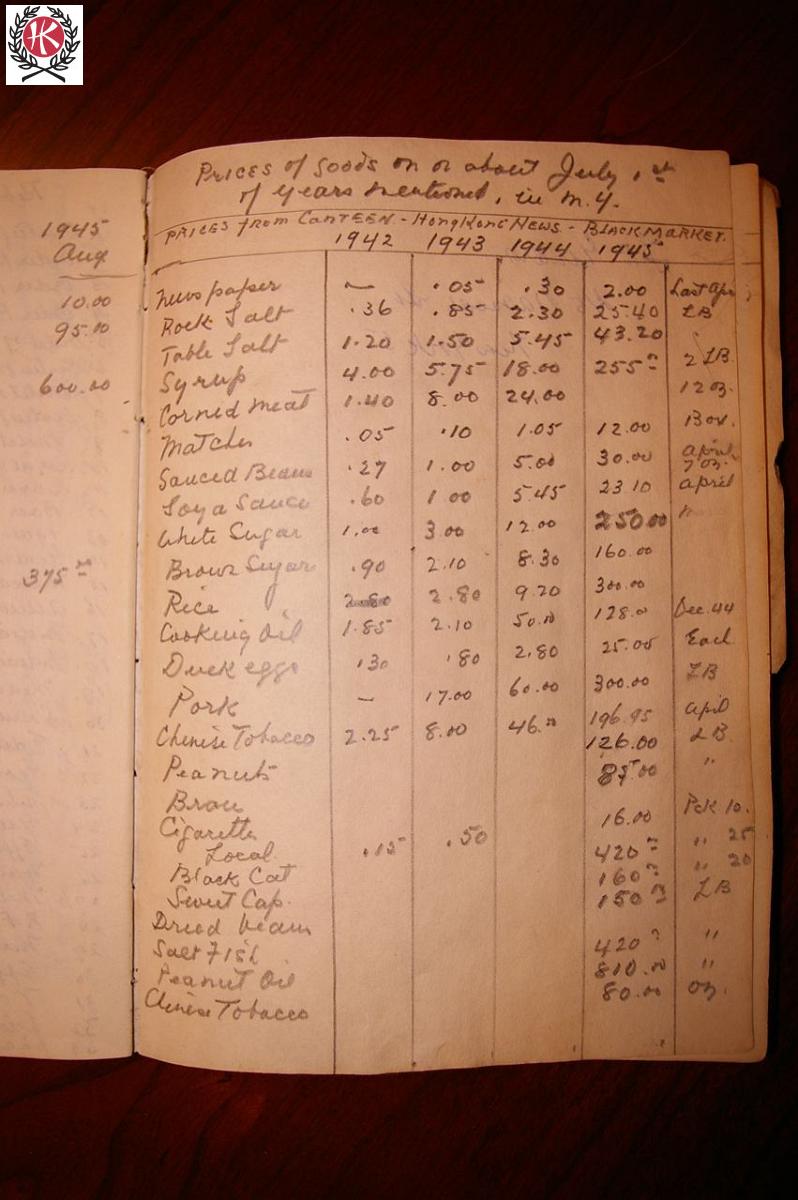 HK
1945
Aug
10.00
95.00
600.00
375.00
Prices of Goods on or about July 1st
of years mentioned, in M.Y.
PRICES from CANTEEN - HONG KONG NEWS - BLACK MARKET.
1942 1943 1944 1945
Newspaper — .05 .30 2.00 Last Apr
Rock Salt .36 .85 2.30 25.40 LB
Table Salt 1.20 1.50 5.45 43.20
Syrup 4.00 5.75 18.00 255.00 2 LB
Corned Meat 1.40 8.00 24.00 12 oz.
Matches .05 .10 1.05 12.00 Box.
Sauced Beans .27 1.00 5.00 30.00 April 7 oz.
Soya Sauce .60 1.00 5.45 23.10 April
White Sugar 1.00 3.00 12.00 250.00
Brown Sugar .90 2.10 8.30 160.00
Rice 2.80 2.80 9.20 300.00
Cooking Oil 1.85 2.10 50.00 128.00 Dec. 44
Duck eggs .30 .80 2.80 25.00 Each
Pork — 17.00 60.00 300.00 LB
Chinise Tobacco 2.25 8.00 46.00 196.95 April
Peanuts 126.00 LB.
Bran 85.00 "
Cigarettes
Local .15 .50 16.00 Pck 10.
Black Cat 420.00 " 25
Sweet Cap. 160.00 " 20
Dried beans 150.00 LB
Salt Fish 420.00 "
Peanut Oil 810.00 "
Chinise Tobacco 80.00 oz.